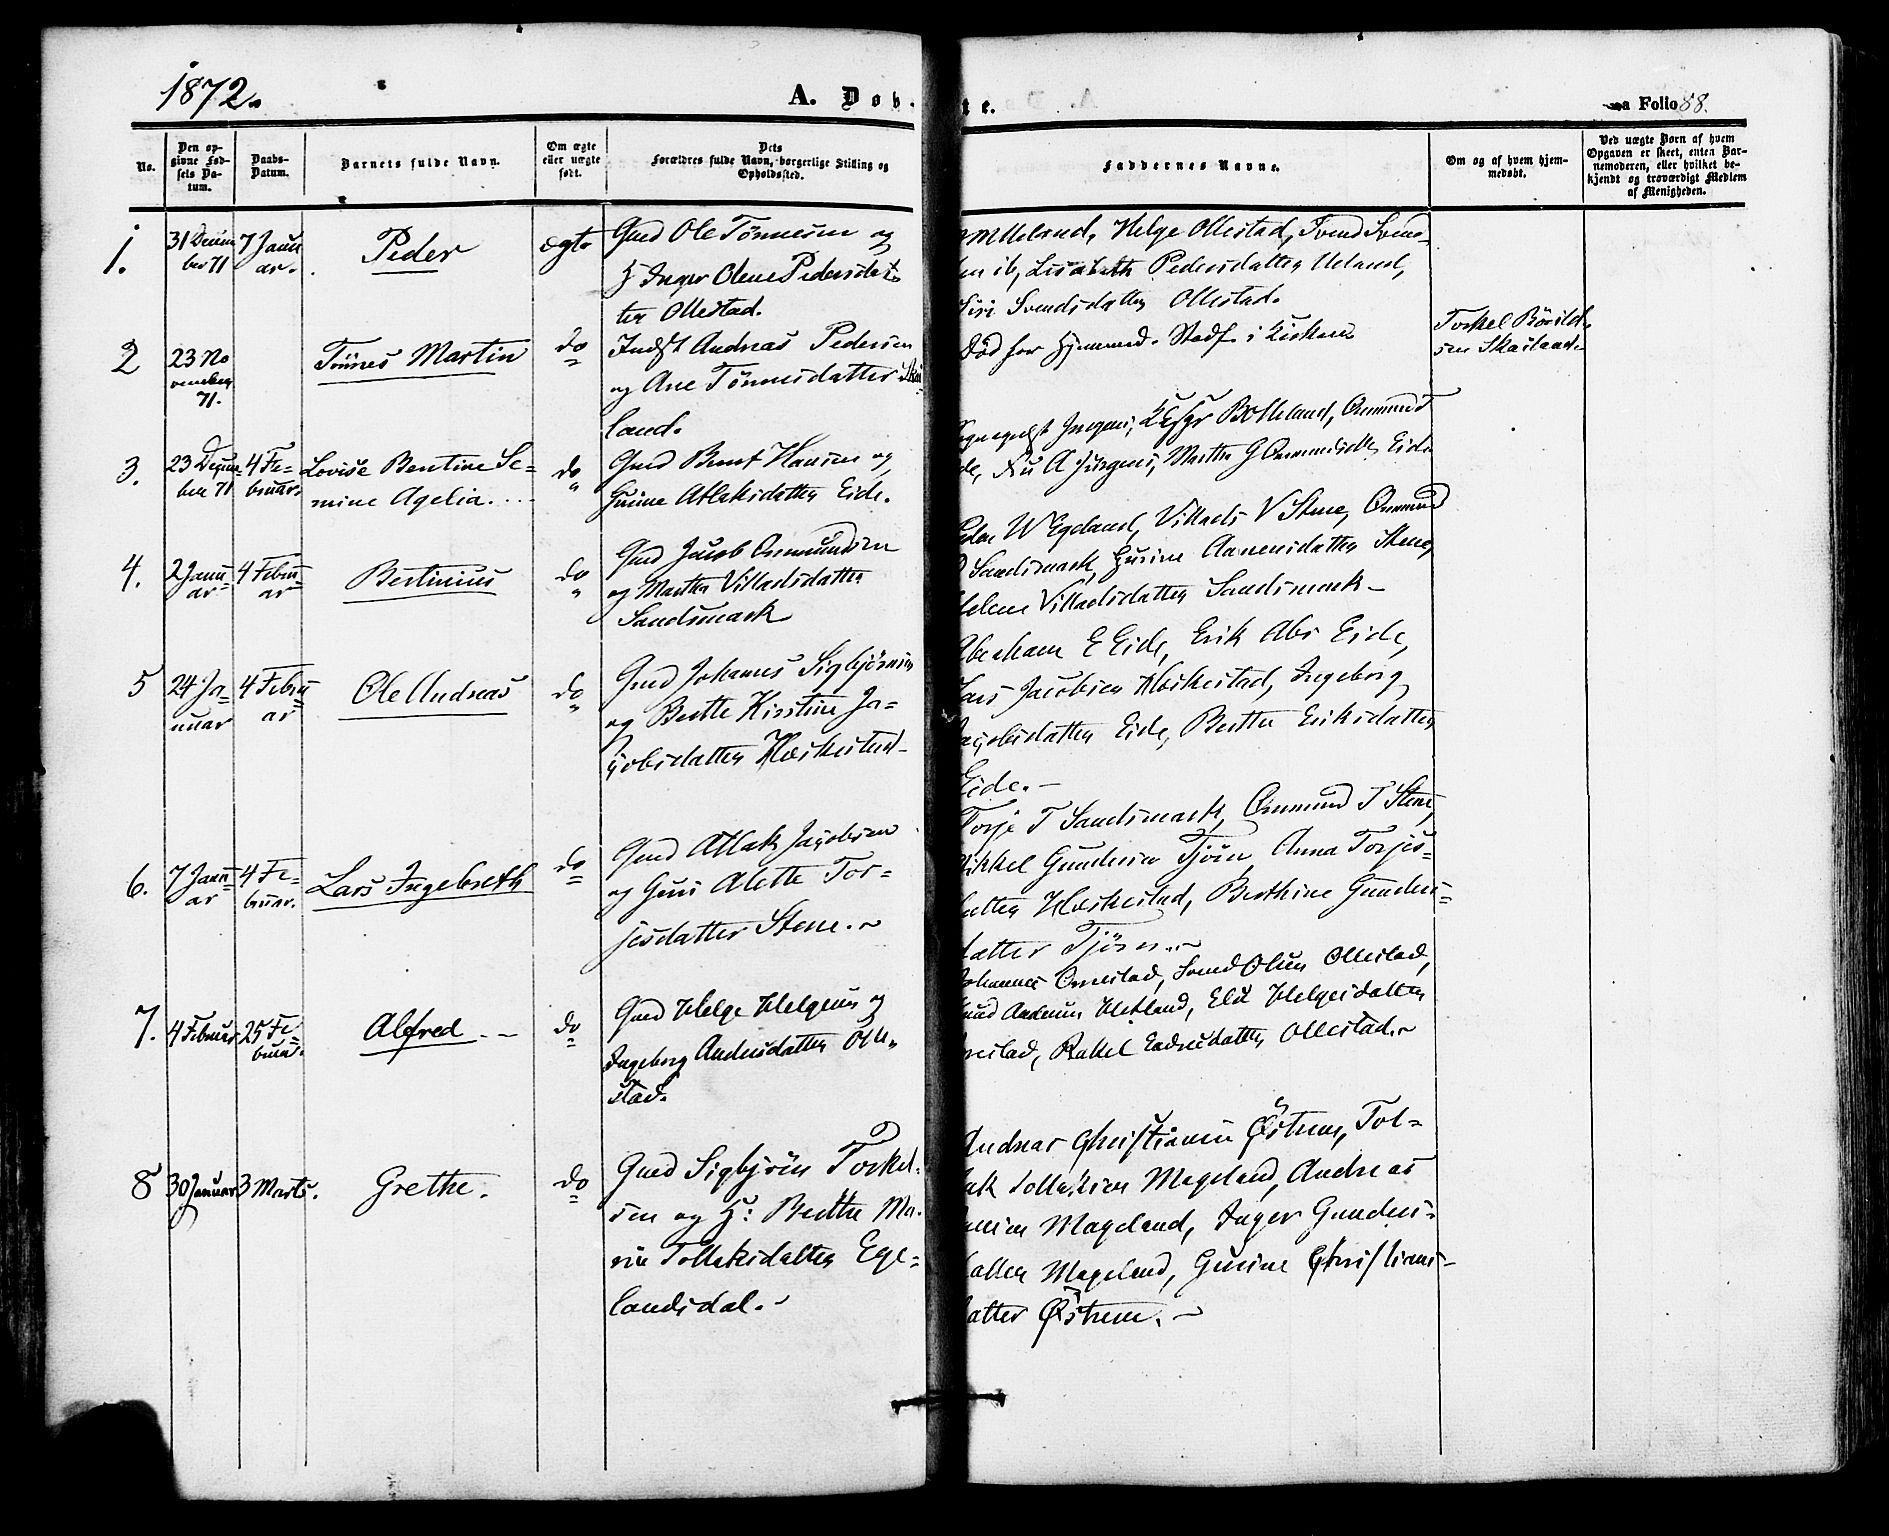 1872.
A. Døb. te.
Folio 88.
No.
Den op-
givne Fød-
sels Da-
tum.
Daabs-
Datum.
Barnets fulde Navn.
Om ægte
eller uægte
født.
Dets
Forældres fulde Navn, borgerlige Stilling og
Opholdssted.
Faddernes Navne.
Om og af hvem hjem-
medøbt.
Ved uægte Børn af hvem
Opgaven er skeet, enten Bar-
nemoderen, eller hvilket be-
kjendt og troværdigt Medlem
af Menigheden.
1.
31 Decem
ber 71
7 Janu
ar.
Peder
ægte
Gmd Ole Tönnesen og
H Inger Olene Pedersdat
ter Ollestad.
Ueland, Helge Ollestad, Svend Svend-
sen ib, Lisabeth Pedersdatter Ueland,
Siri Svendsdatter Ollestad.
2
23 No
vember
71.
Tönnes Martin
do
Indst Andreas Pedersen
og Ane Tönnesdatter Skai
land.
Död før Hjemmed. Stadf. i Kirken
Torkel Böild-
sen Skailand.
3.
23 Decem-
ber 71
4 Fe-
bruar.
Lovise Bentine Se-
mine Agelia. . .
do
Gmd Bernt Hansen og
Gurine Atlaksdatter Eide.
Jürgens, Martha G Ommundsdtt, Eide
4.
2 Janu-
ar
4 Febru-
ar
Bertinius
do
Gmd Jacob Ommundsen
og Martha Villadsdatter
Sandsmark
Peder W Egeland, Villads V Stene, Ommund
Sandsmark, Gurine Aanensdatter Stene,
Helene Villadsdatter Sandsmark -
5
24 Ja-
nuar
4 Febru
ar
Ole Andreas
do
Gmd Johannes Sigbjörnsen
og Berthe Kirstine Ja-
cobsdatter Hæskestad -
Abraham E Eide, Erik Abr Eide,
Lars Jacobsen Hæskestad, Ingeborg
Jacobsdatter Eide, Berthe Eriksdatter
Eide. -
6.
7 Janu-
ar
4 Fe-
bruar.
Lars Ingebreth
do
Gmd Atlak Jacobsen
og Guri Alette Tor-
jesdatter Stene. ~
Torje T Sandsmark, Ommund T Stene,
Mikkel Gundersen Tjörn, Anna Torjes-
datter Hæskestad, Berthine Gunders-
datter Tjörn. ~
7.
4 Februar
25 Fe-
bruar.
Alfred - -
do
Gmd Helge Helgesen og
Ingeborg Andersdatter Olle-
stad.
Johannes Omestad, Svend Olsen Ollestad,
Andersen Hetland, Eli Helgesdatter
Omestad, Rakel Endresdatter Ollestad. ~
8
30 Januar
3 Marts.
Grethe.
do
Gmd Sigbjörn Torkel-
sen og H: Berthe Ma-
rie Tollaksdatter Ege-
landsdal. ~
Andreas Christiansen Østrem, Tol-
lak Tollaksen Mageland, Andreas
Mageland, Inger Gunders-
datter Mageland, Gurine Christians-
datter Østrem. ~